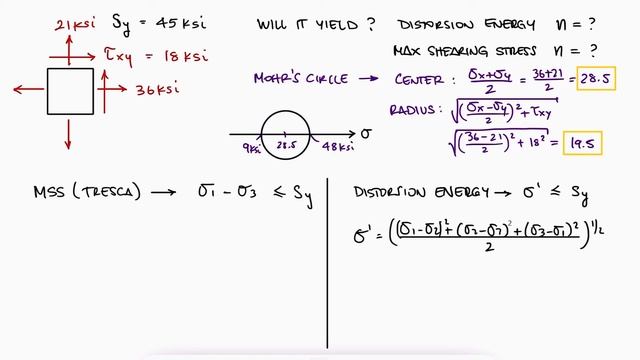 21 ksi
Sy = 45 ksi
τxy = 18 ksi
36 ksi
WILL IT YIELD ? DISTORSION ENERGY n = ?
MAX SHEARING STRESS n = ?
MOHR'S CIRCLE → CENTER: (σx+σy)/2 = (36+21)/2 = 28.5
RADIUS: √((σx-σy)/2)² + τxy
√((36-21)/2)² + 18² = 19.5
σ
9ksi 28.5 48ksi
MSS (TRESCA) → σ1 - σ3 ≤ Sy
DISTORSION ENERGY → σ' ≤ Sy
σ' = (((σ1-σ2)²+(σ2-σ3)²+(σ3-σ1)²)/2)^1/2